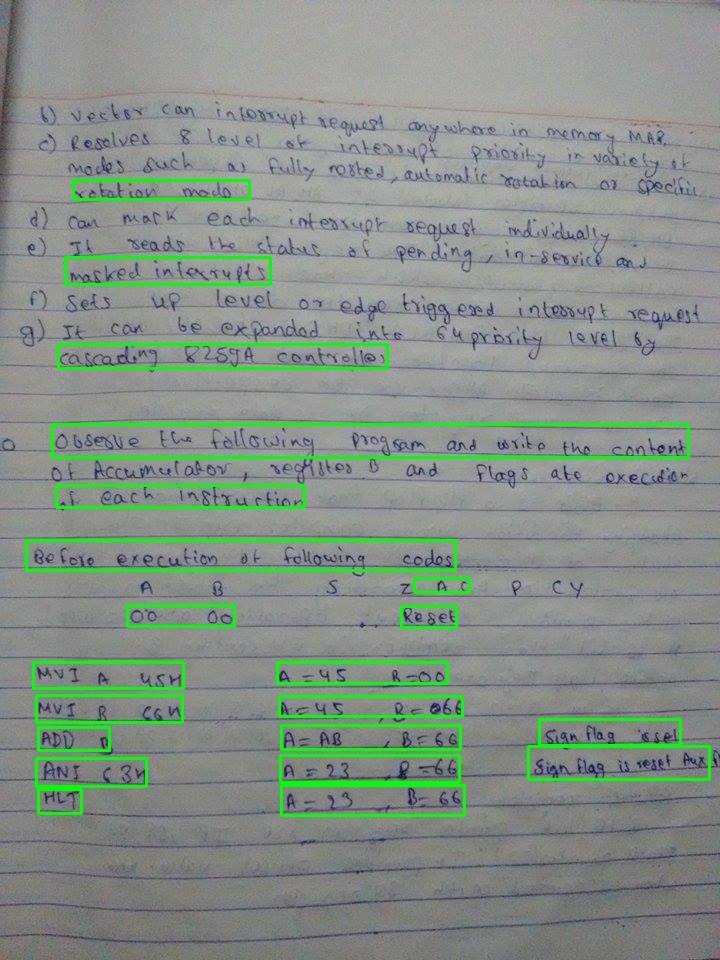 b) Vector can interrupt request anywhere in memory MAP.
c) Resolves 8 level of interrupt priority in variety of
modes such as fully nosted, automatic rotation or specific
rotation mode
d) Can mark each interrupt request individually
e) It reads the status of pending, in-service and
masked interrupts
f) Sets up level or edge triggered interrupt request
g) It can be expanded into 64 priority level by
cascading 8259A controller
Observe the following program and write the content
of Accumulator, register B and flags ate execution
of each instruction
Before execution of following codes
A B S Z AC P CY
00 00 Reset
MVI A 45H A = 45 B = 00
MVI B 66H A = 45, B = 66
ADD B A = AB, B = 66 Sign flag is set
ANI 63H A = 23, B = 66 Sign flag is reset Aux
HLT A = 23, B = 66